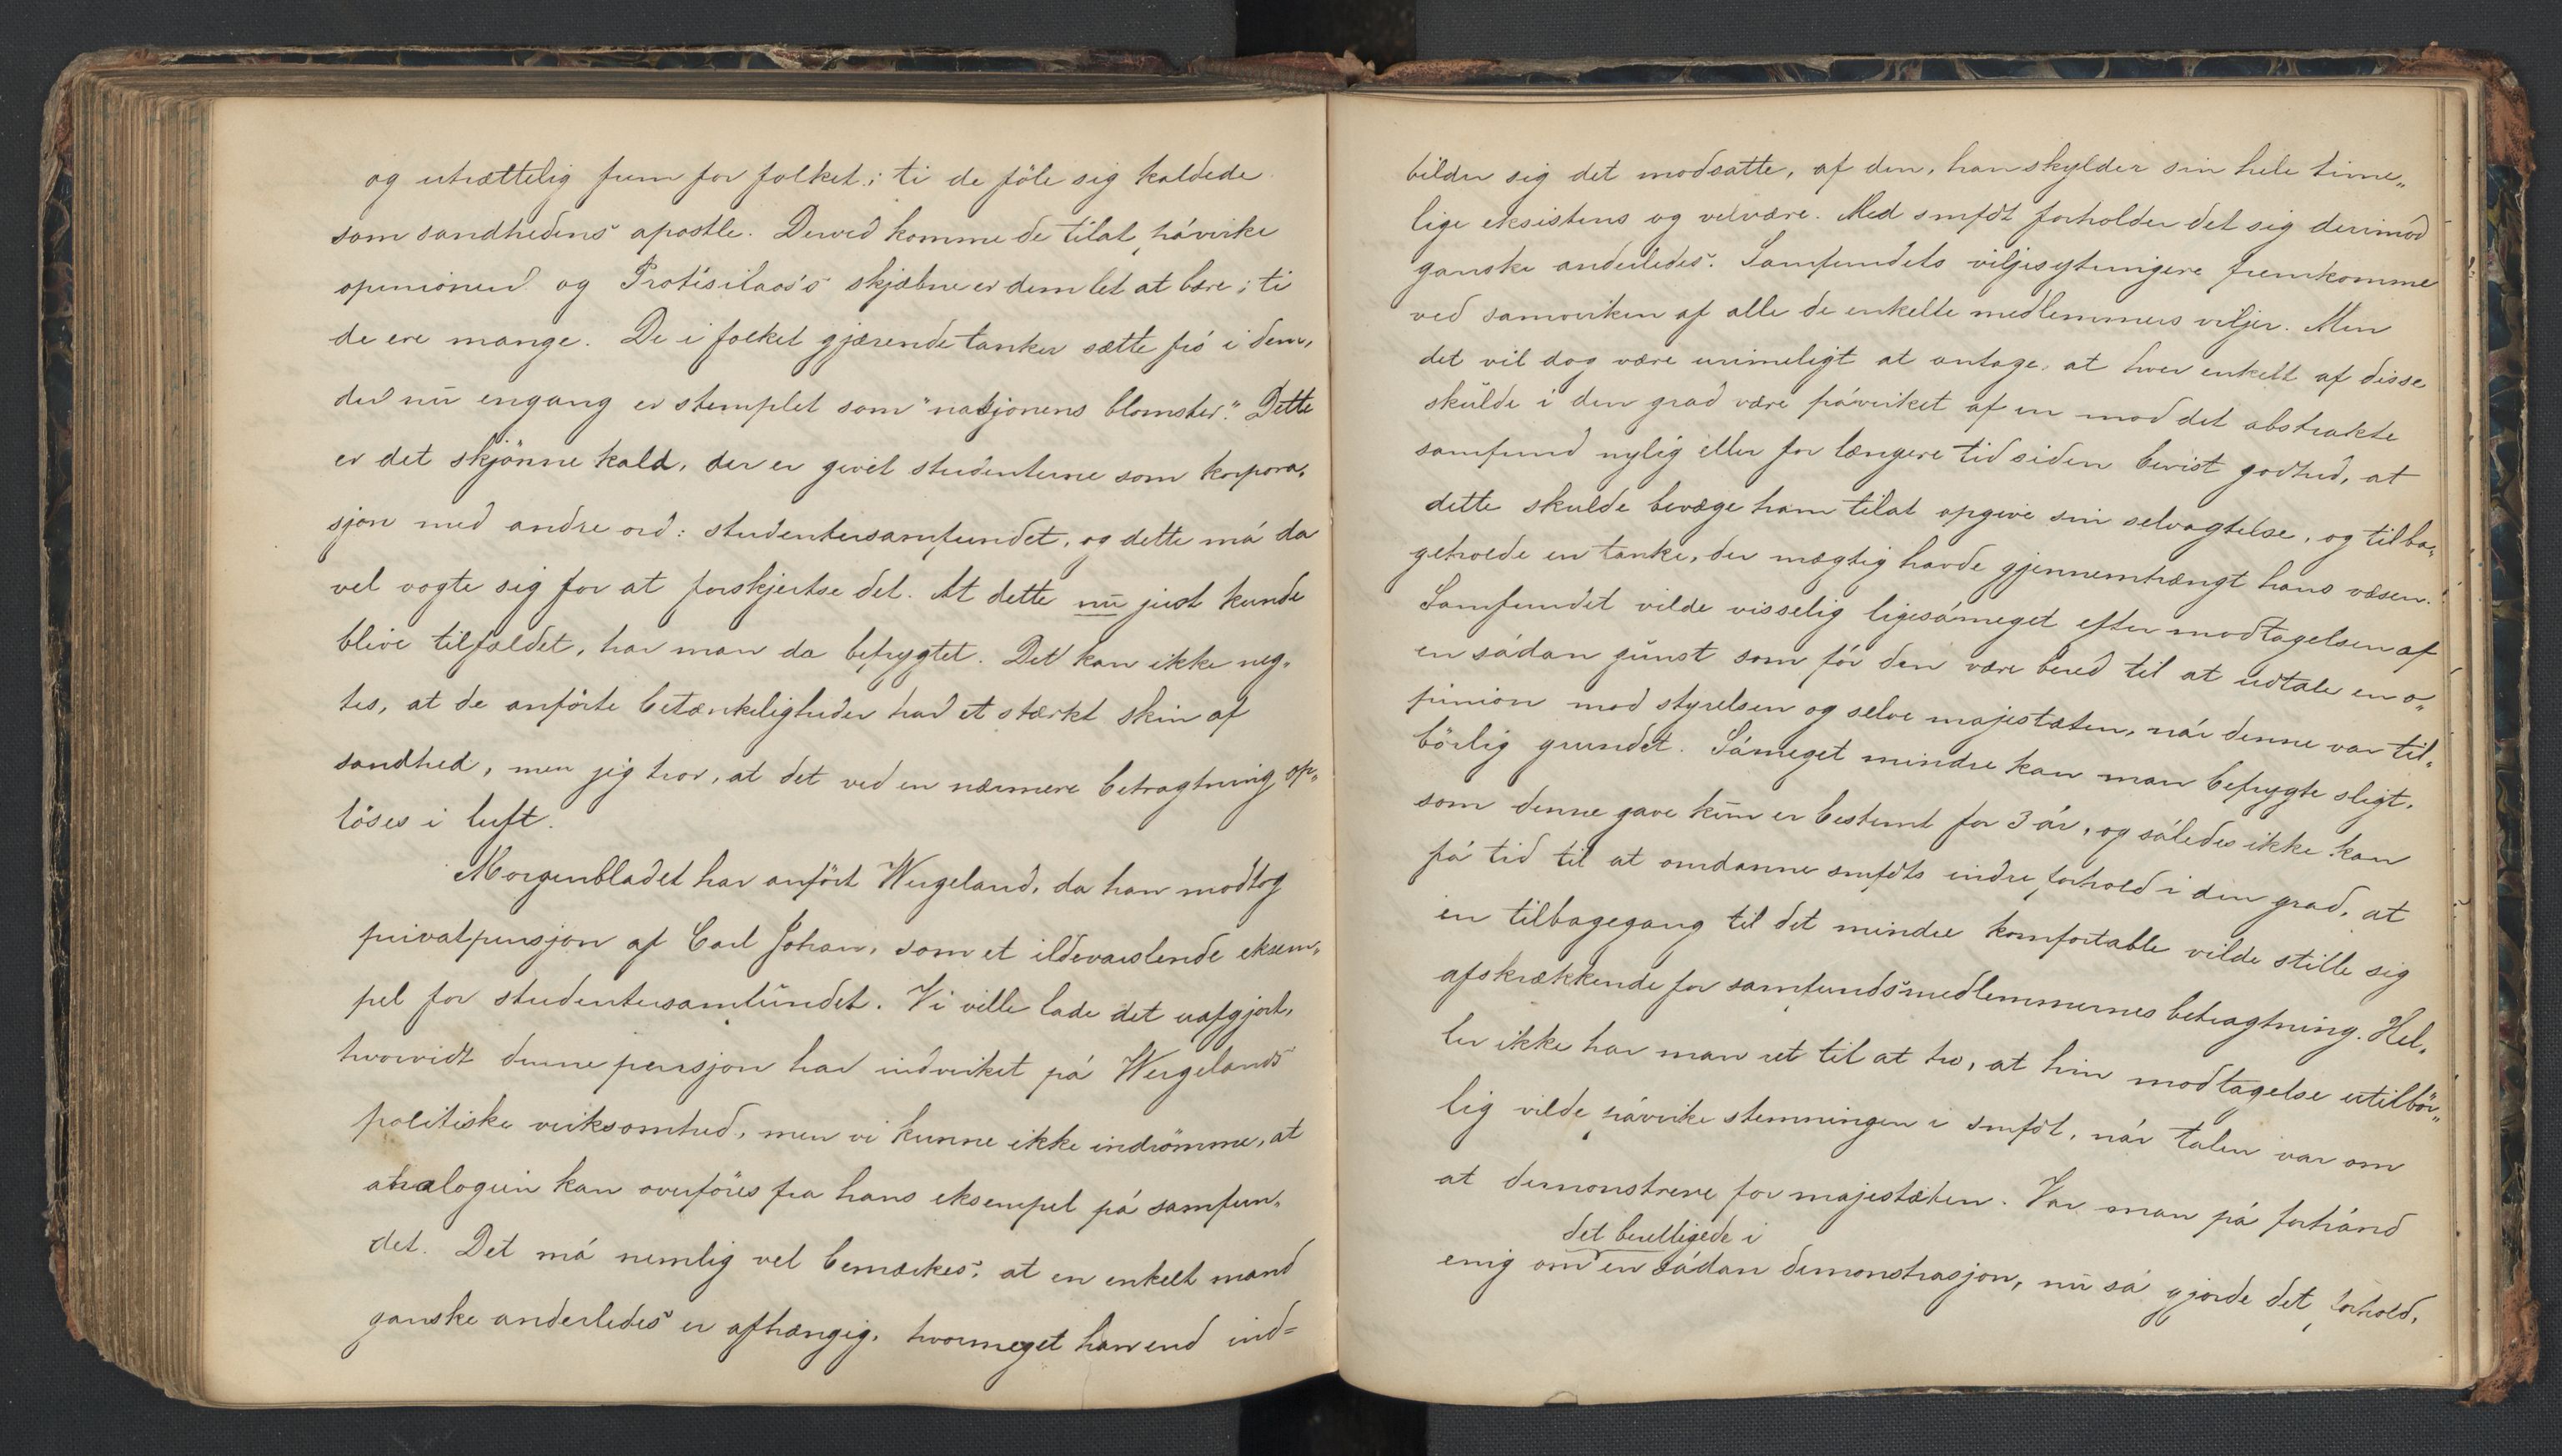 og utrættelig frem for folket; ti de föle sig kaldede
som sandhedens apostle. Derved komme de tilat påvirke
opinionen og Protesilaos's skjæbne er dem let at bære; ti
de ere mange. De i folket gjærende tanker sætte frö i dem,
der nu engang er stemplet som "nasjonens blomster." Dette
er det skjönne kald, der er givet studenterne som korpora„
sjon med andre ord: studentersamfundet, og dette må da
vel vogte sig for at forskjertse det. At dette nu just kunde
blive tilfældet, har man da befrygtet. Det kan ikke neg„
tes, at de anförte betænkeligheder har et stærkt skin af
sandhed, men jeg tror, at det ved en nærmere betragtning op„
löses i luft.
Morgenbladet har anfört Wergeland, da han modtog
privatpensjon af Carl Johan, som et ildevarslende eksem„
pel for studentersamfundet. Vi ville lade det uafgjort,
hvorvidt denne pensjon har indvirket på Wergelands
politiske virksomhed, men vi kunne ikke indrömme, at
analogien kan overföres fra hans eksempel på samfun„
det. Det må nemlig vel bemærkes, at en enkelt mand
ganske anderledes er afhængig, hvormeget han end ind=
bilder sig det modsatte, af den, han skylder sin hele time„
lige eksistens og velvære. Med smfdt forholder det sig derimod
ganske anderledes. Samfundets viljesytringere fremkomme
ved samvirken af alle de enkelte medlemmers viljer. Men
det vil dog være urimeligt at antage, at hver enkelt af disse
skulde i den grad være påvirket af en mod det abstrakte
samfund nylig eller for længere tid siden bevist godhed, at
dette skulde bevæge ham tilat opgive sin selvagtelse, og tilba„
geholde en tanke, der mægtig havde gjennemtrængt hans væsen.
Samfundet vilde visselig ligesåmeget efter modtagelsen af
en sådan gunst som för den være bered til at udtale en o„
pinion mod styrelsen og selve majestæten, når denne var til„
börlig grundet. Såmeget mindre kan man befrygte sligt,
som denne gave kun er bestemt for 3 år, og således ikke kan
få tid til at omdanne smfdts indre forhold i den grad, at
en tilbagegang til det mindre komfortable vilde stille sig
afskrækkende for samfundsmedlemmernes betragtning. Hel„
ler ikke har man ret til at tro, at hin modtagelse utilbör„
lig vilde påvirke stemningen i smfdt, når talen var om
at demonstrere for majestæten. Var man på forhånd
det berettigede i
enig om en sådan demonstrasjon, nu så gjorde det forhold,